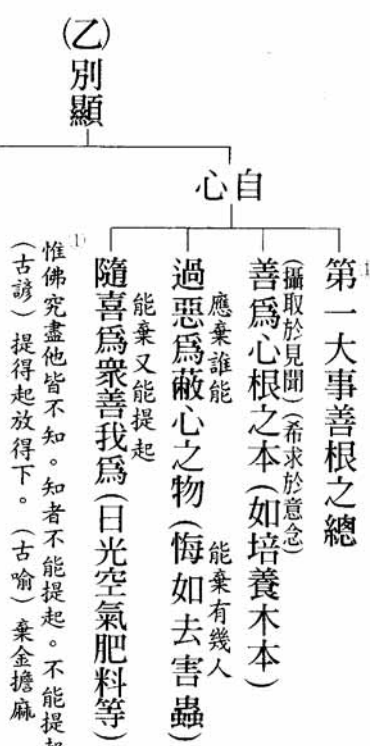 (乙)別顯
自心
第一大事善根之總
(攝取於見聞)(希求於意念)
善爲心根之本(如培養木本)
應棄誰能 能棄有幾人
過惡爲蔽心之物(悔如去害蟲)
能棄又能提起
隨喜爲衆善我爲(日光空氣肥料等)
惟佛究盡他皆不知。知者不能提起。不能提起
(古諺)提得起放得下。(古喻)棄金擔麻